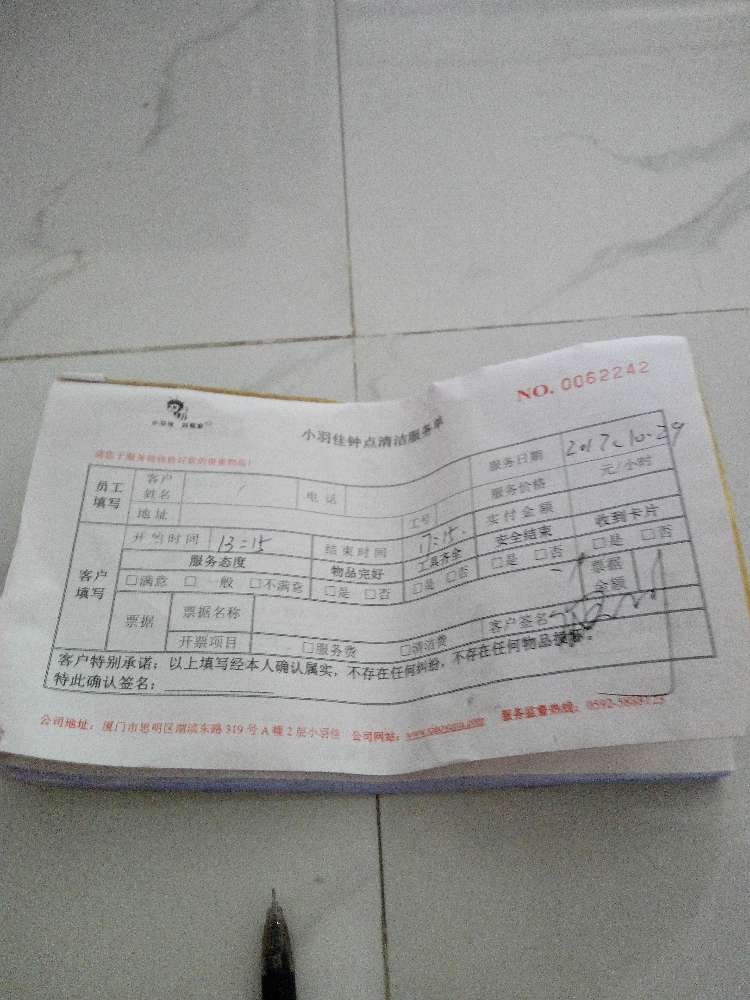 NO. 0062242
小羽佳钟点清洁服务单
员工填写 客户姓名 电话 服务日期 2017.10.29
地址 工号 服务价格 元/小时
客户填写 开始时间 13:15 结束时间 17:15 实付金额
服务态度 物品完好 工具齐全 安全结束 收到卡片
□满意 □一般 □不满意 □是 □否 □是 □否 □是 □否 □是 □否
票据 票据名称 票据金额
开票项目 □服务费 □清洁费 客户签名
客户特别承诺：以上填写经本人确认属实，不存在任何纠纷，不存在任何物品
特此确认签名：
公司地址：厦门市思明区湖滨东路319号A幢2层小羽佳 公司网站： 服务监督热线：